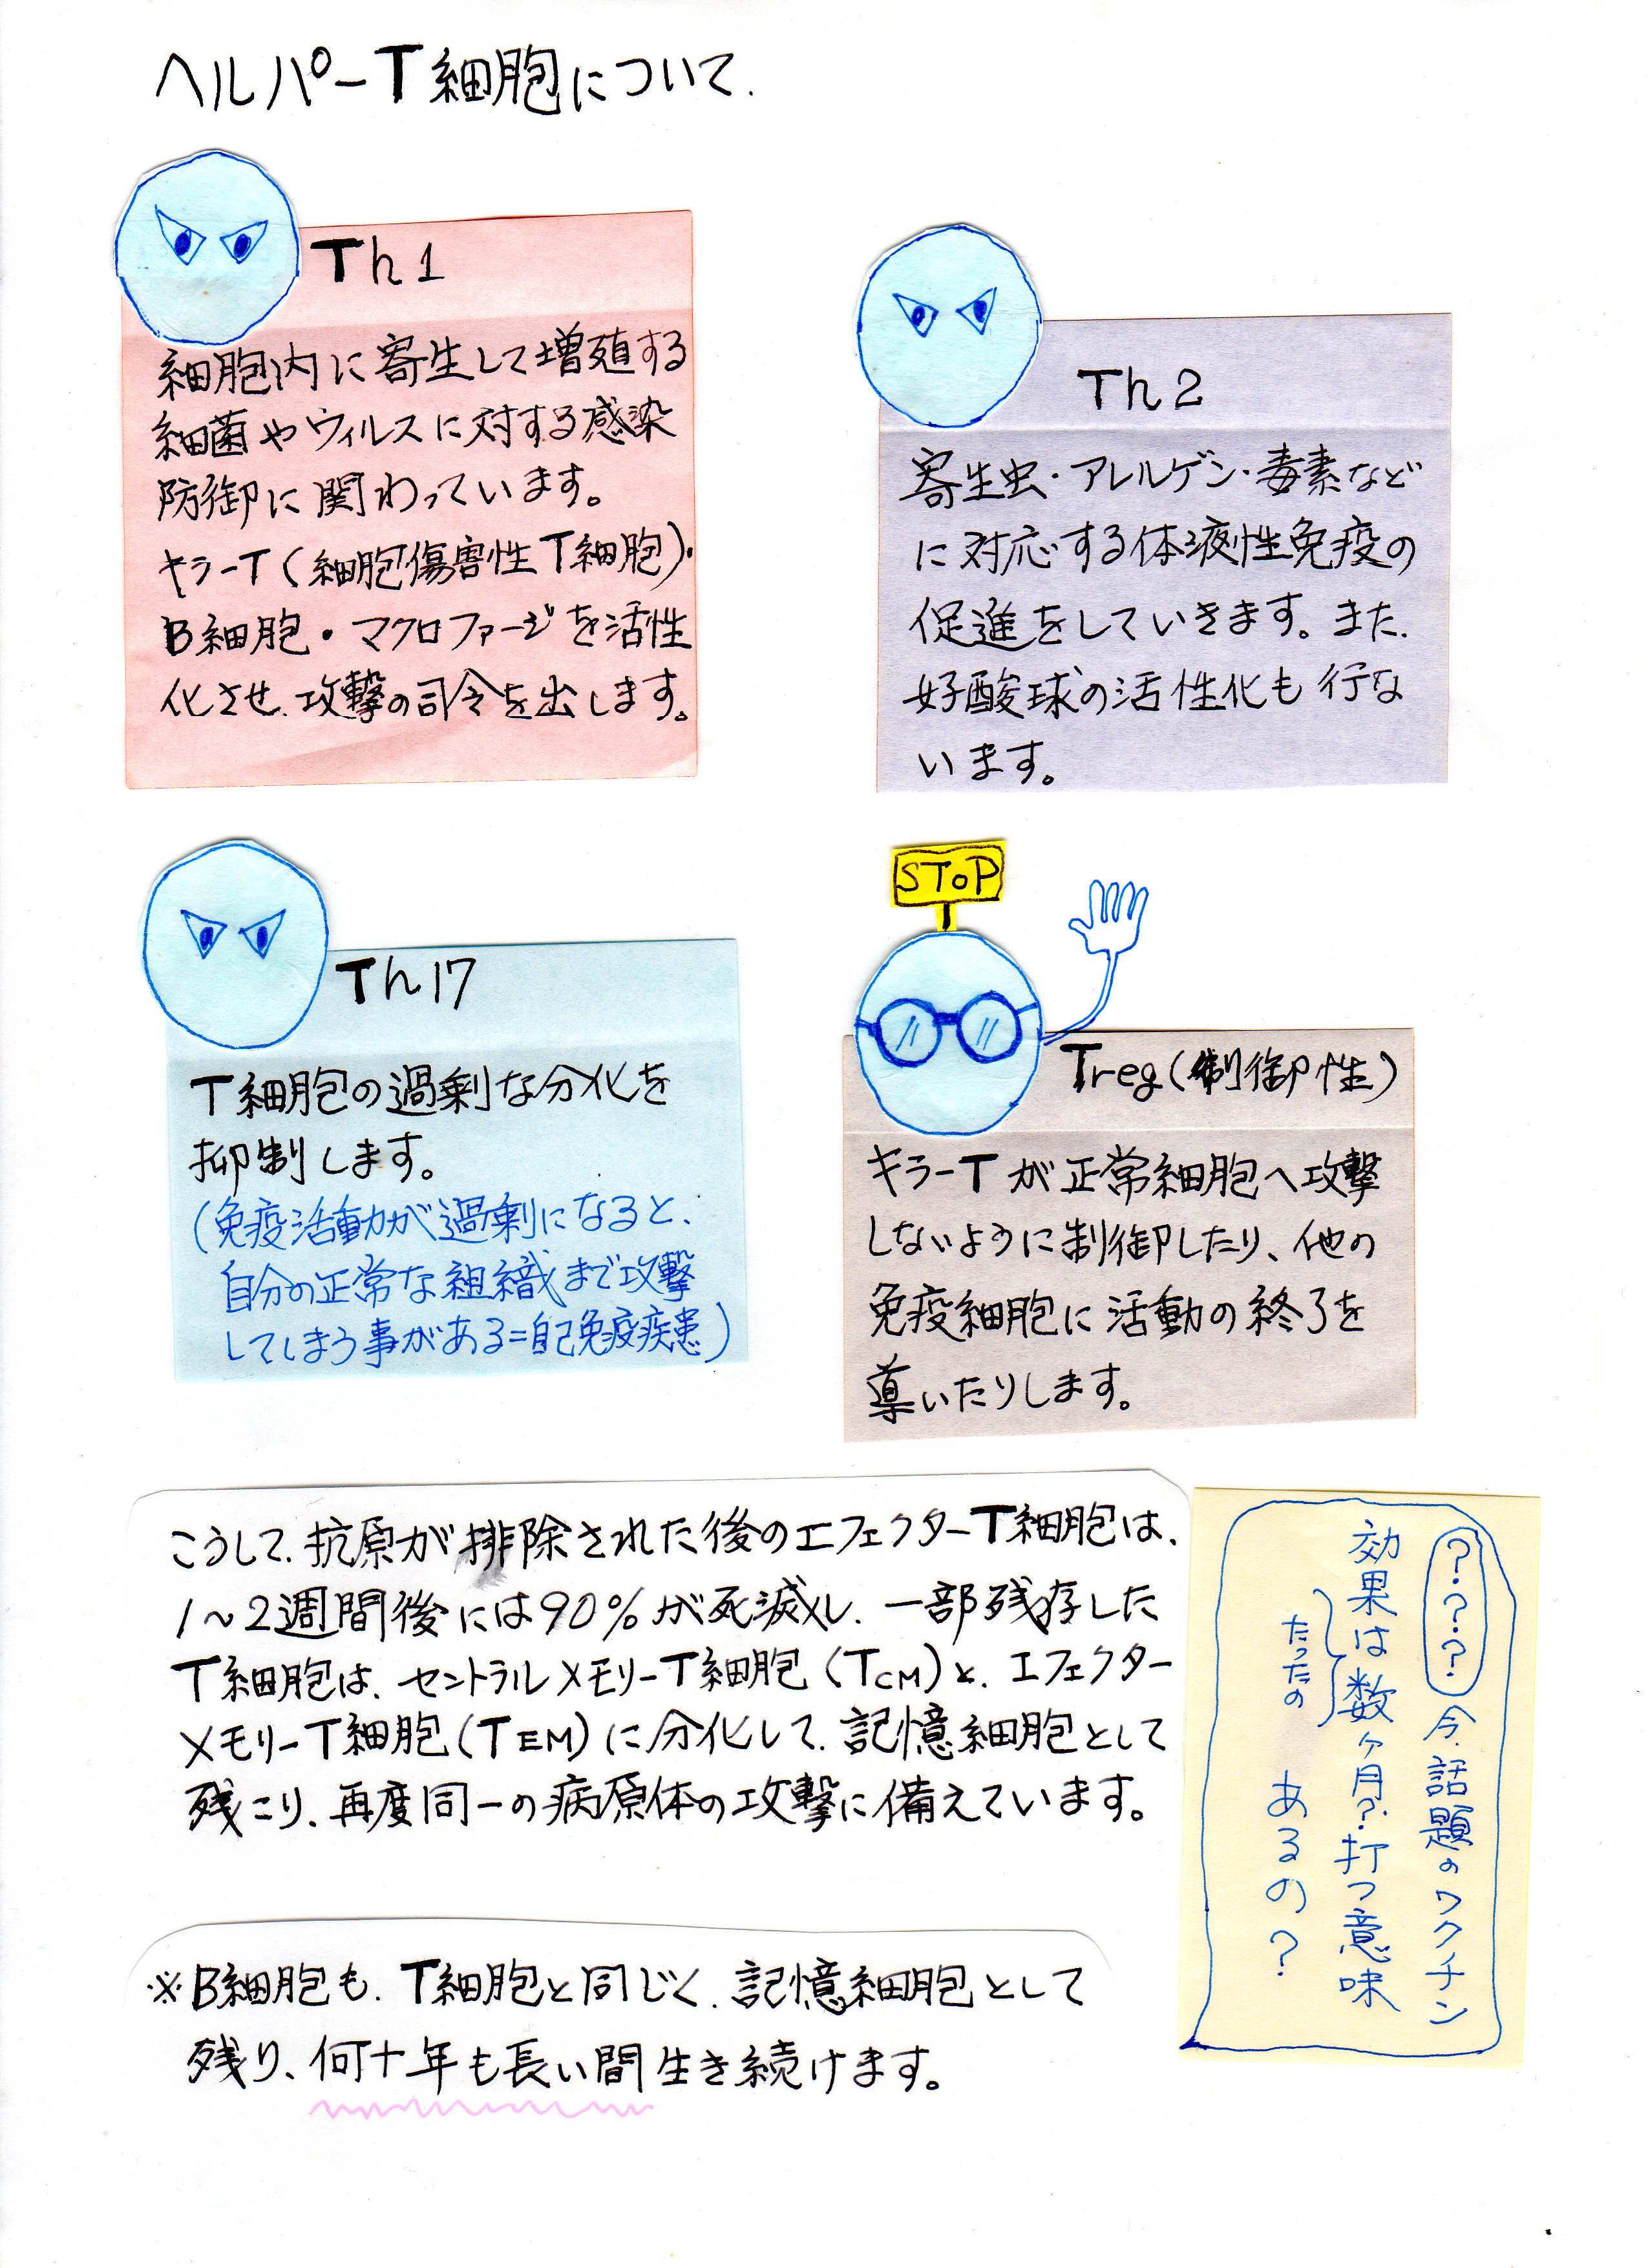 ヘルパーT細胞について.
Th1
細胞内に寄生して増殖する
細菌やウィルスに対する感染
防御に関わっています。
キラーT(細胞傷害性T細胞)・
B細胞・マクロファージを活性
化させ、攻撃の司令を出します。
Th2
寄生虫・アレルゲン・毒素など
に対応する体液性免疫の
促進をしていきます。また、
好酸球の活性化も行な
います。
Th17
T細胞の過剰な分化を
抑制します。
(免疫活動が過剰になると、
自分の正常な組織まで攻撃
してしまう事がある=自己免疫疾患)
STOP
Treg(制御性)
キラーTが正常細胞へ攻撃
しないように制御したり、他の
免疫細胞に活動の終了を
導いたりします。
こうして、抗原が排除された後のエフェクターT細胞は、
1~2週間後には90%が死滅し、一部残存した
T細胞は、セントラルメモリーT細胞(TCM)と、エフェクター
メモリーT細胞(TEM)に分化して、記憶細胞として
残こり、再度同一の病原体の攻撃に備えています。
?・?・?・今、話題のワクチン
効果は数ヶ月?打つ意味
たったの
あるの?
※B細胞も、T細胞と同じく、記憶細胞として
残り、何十年も長い間生き続けます。